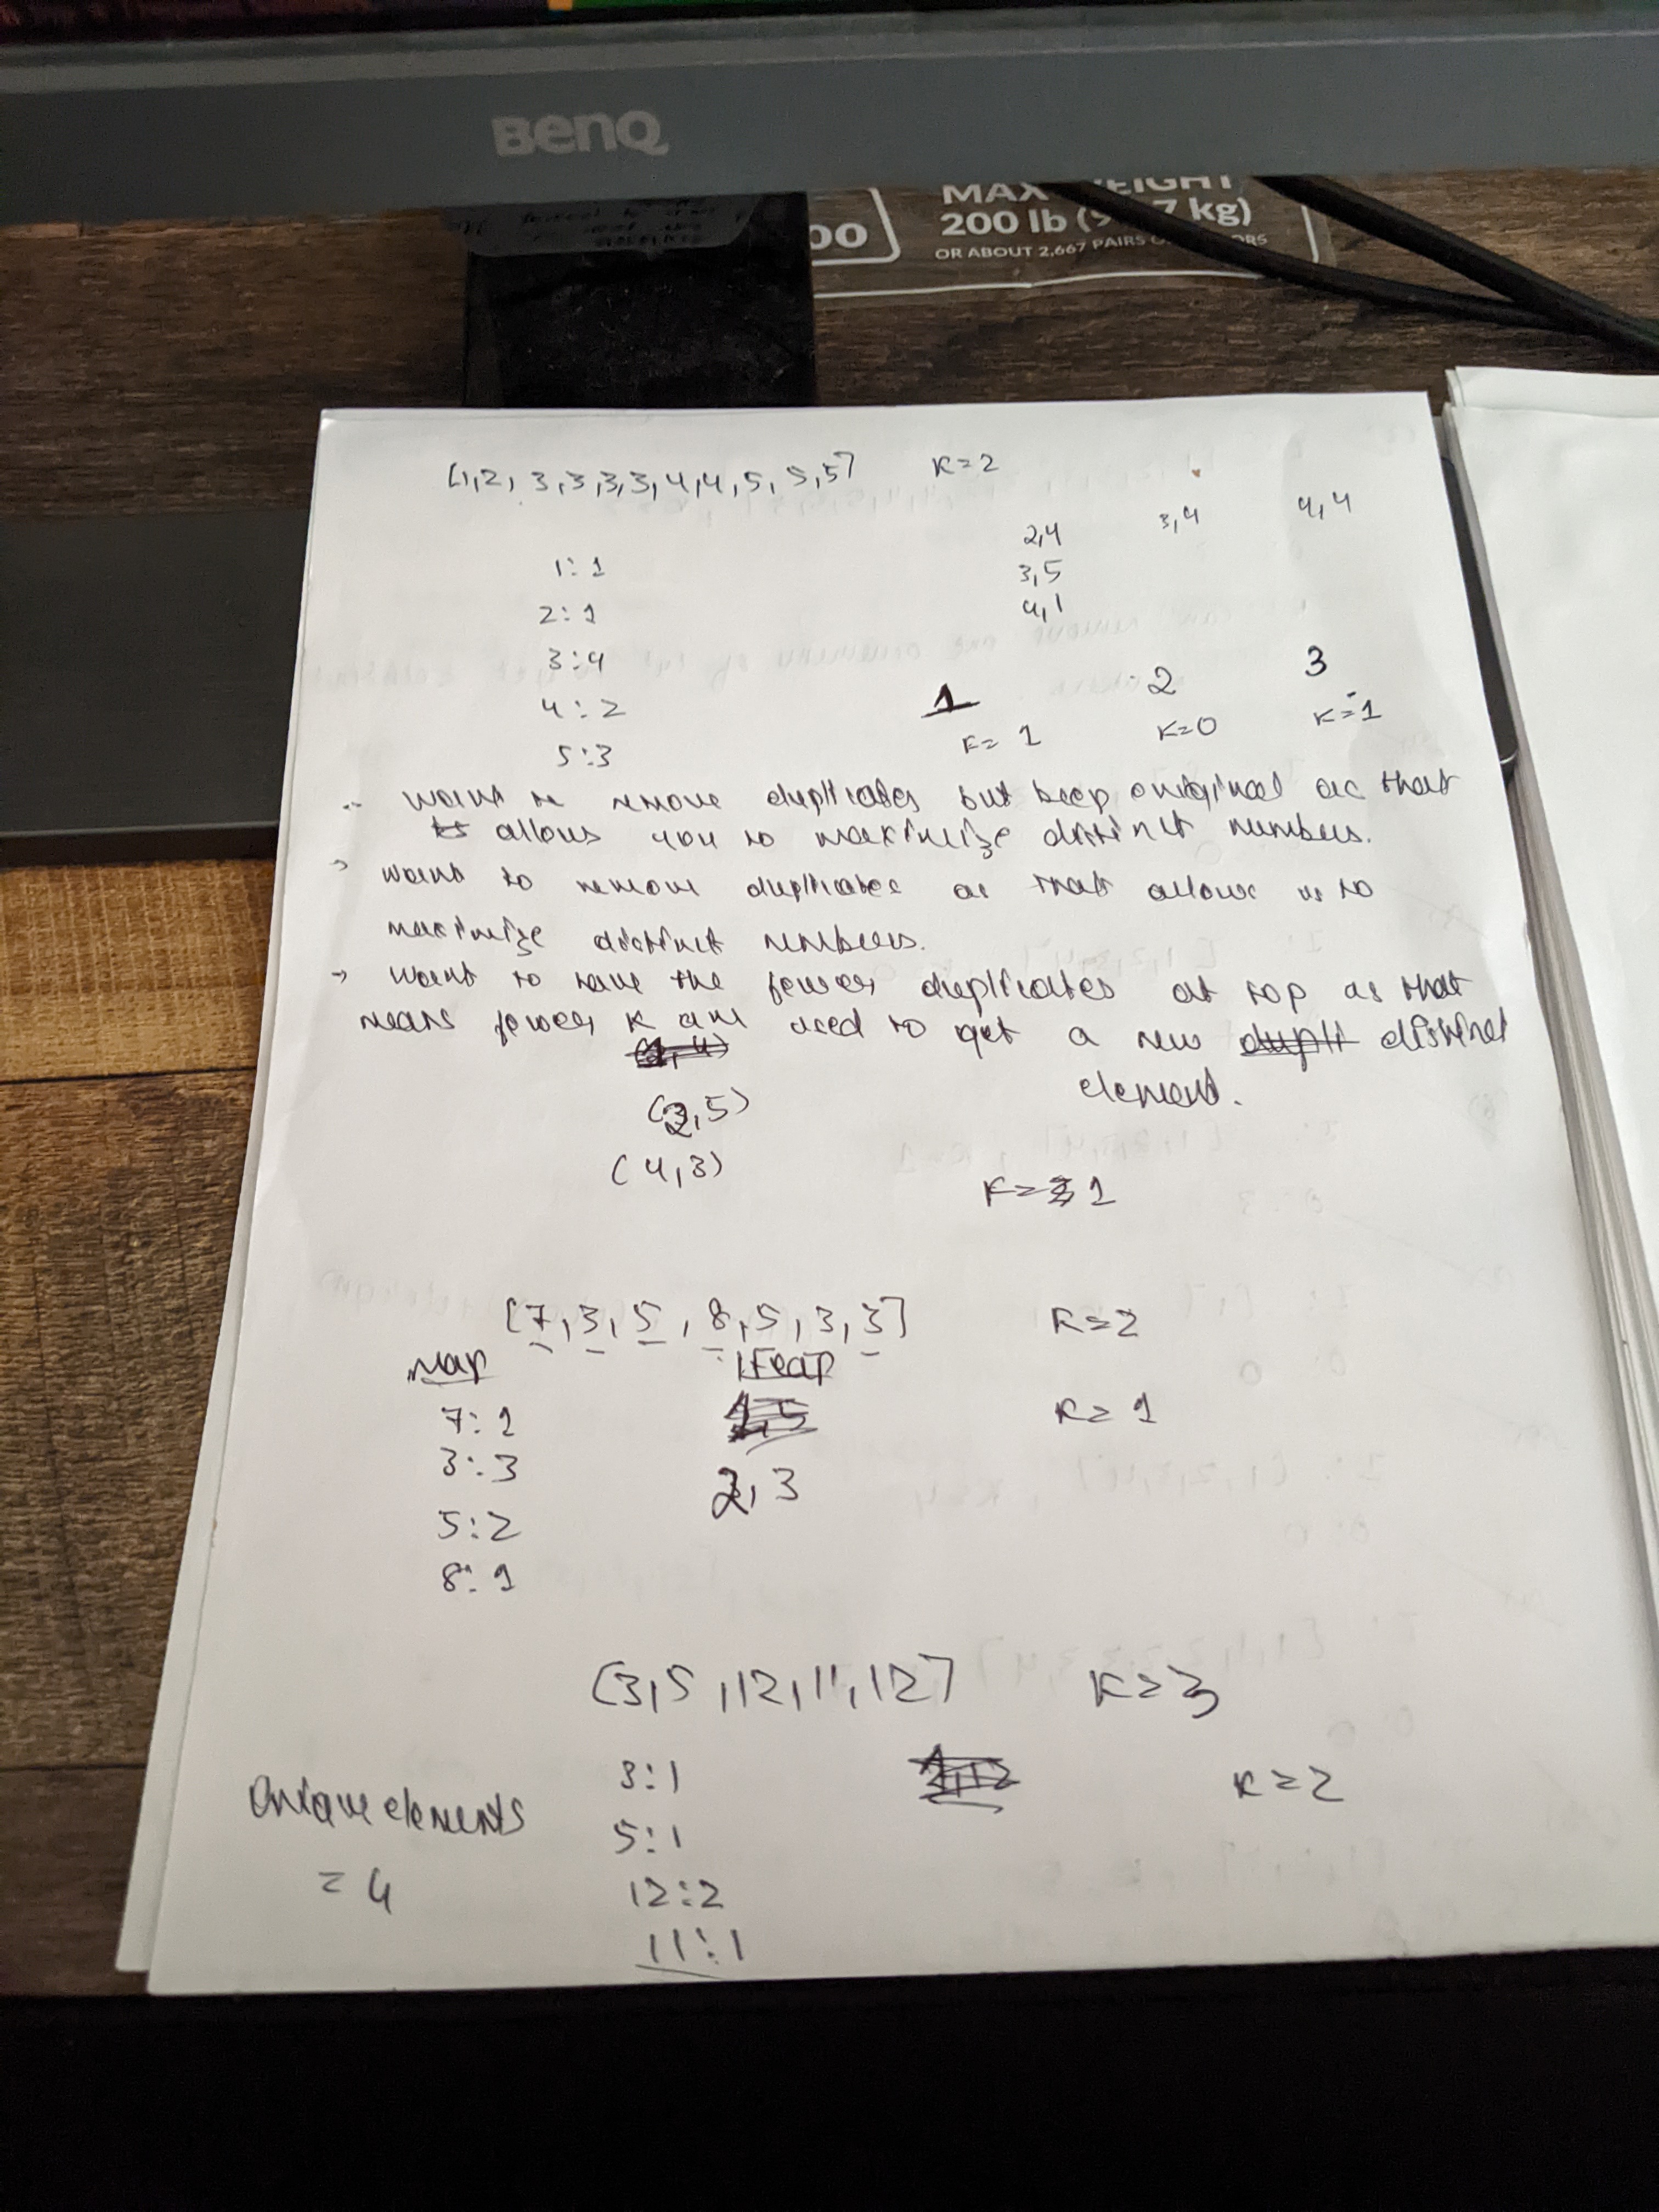 BenQ
MAX WEIGHT
200 lb (9 7 kg)
OR ABOUT 2,667 PAIRS O ORS
00
[1,2, 3,3,3,3,4,4,5,5,5] K=2
2,4 3,4 4,4
1:1 3,5
2:1 4,1
3:4
4:2 1 2 3
5:3 K=1 K=0 K=1
want to remove duplicates but keep original as that
allows you to maximize distinct numbers.
→ want to remove duplicates as that allows us to
maximize distinct numbers.
→ want to have the fewer duplicates at top as that
means fewer K are used to get a new dupli distinct
element.
(2,5)
(4,3)
K= 1
[7,3,5,8,5,3,3] K=2
Map Heap
7:1 1,5 K=1
3:3
5:2 2,3
8:1
[3,5,12,11,12] K=3
3:1 1,12 K=2
Unique elements
5:1
= 4
12:2
11:1